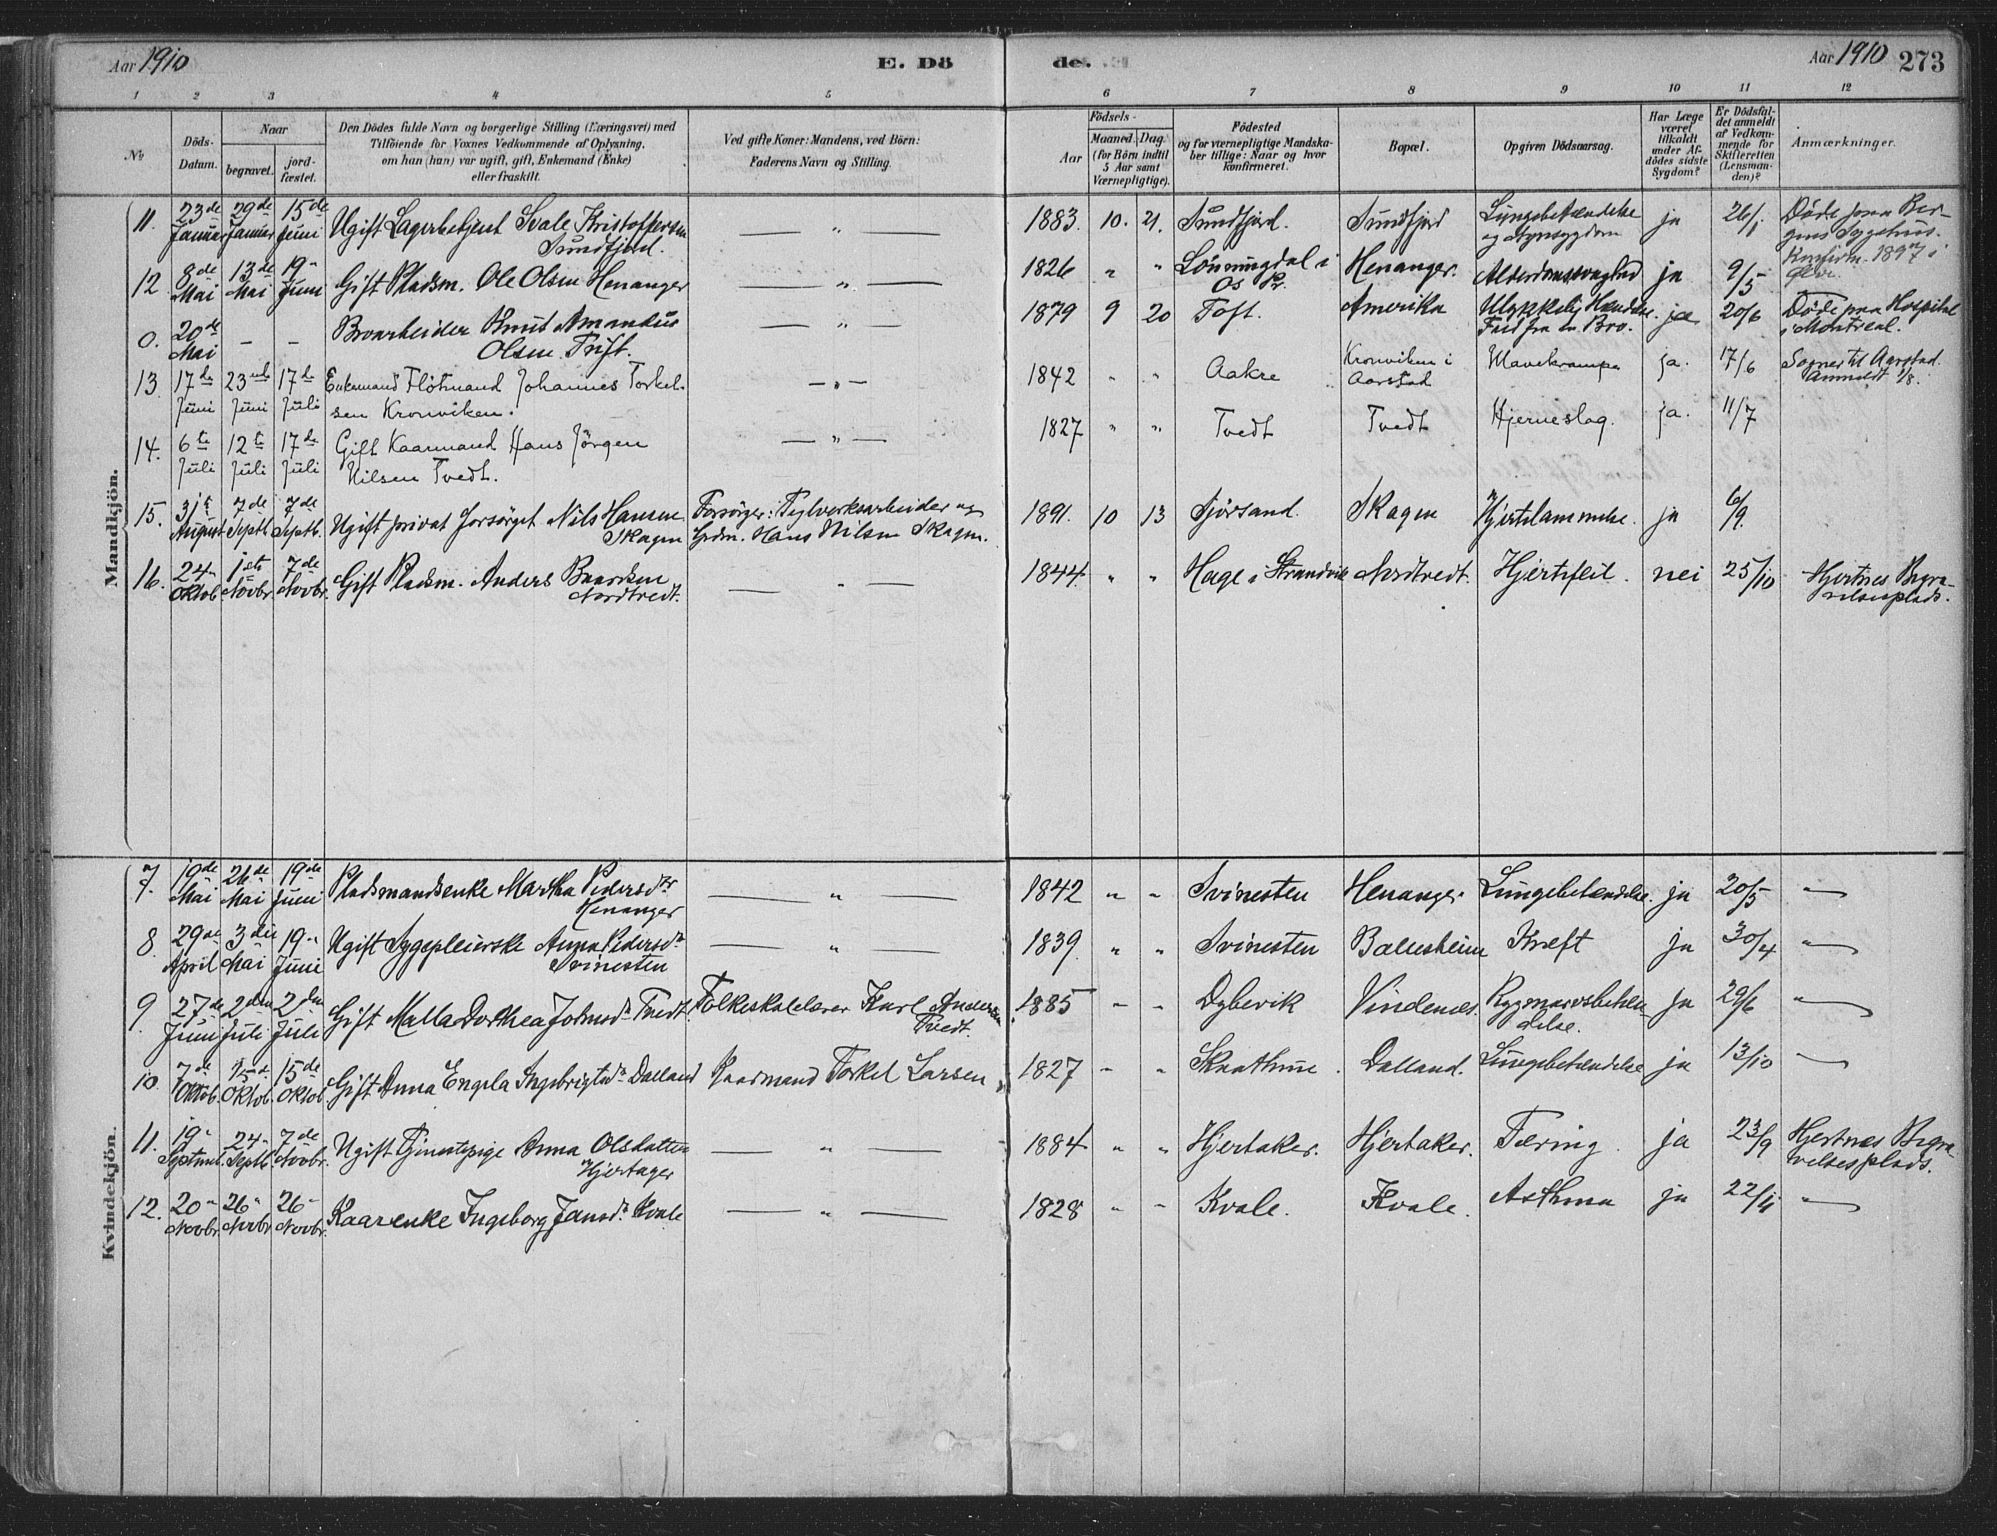 Aar 1910
E. Dö
de.
Aar 1910 273
1 2 3 4 5 6 7 8 9 10 11 12
№
Döds-
Datum.
Naar
begravet.
jord-
fæstet.
Den Dödes fulde Navn og borgerlige Stilling (Næringsvei) med
Tilföiende for Voxnes Vedkommende af Oplysning,
om han (hun) var ugift, gift, Enkemand (Enke)
eller fraskilt.
Ved gifte Koner: Mandens, ved Börn:
Faderens Navn og Stilling.
Födsels-
Aar
Maaned. Dag.
(for Börn indtil
5 Aar samt
Værnepligtige).
Födested
og for værnepligtige Mandska-
ber tillige: Naar og hvor
konfirmeret.
Bopæl.
Opgiven Dödsaarsag.
Har Læge
været
tilkaldt
under Af-
dödes sidste
Sygdom?
Er Dödsfal-
det anmeldt
af Vedkom-
mende for
Skifteretten
(Lensman-
den)?
Anmærkninger.
Mandkjön.
11. 23de Januar 29de Januar 15de Juni Ugift Lagerbetjent Svale Kristoffersen
Sundfjord. — „ — 1883. 10. 21. Sundfjord. Sundfjord Lungebetændelse
og ja 26/1 Döde paa Ber-
gens Sygehus.
Konfirm. 1897 i
12 8de Mai 13de Mai 19 Juni Gift Pladsm. Ole Olsen Henanger — „ — 1826 „ „ Lönningdal i
Os Pr. Henanger. Alderdomssvaghed ja 9/5
0. 20de Mai – – Broarbeider Knut Amandus
Olsen Tuft. — „ — 1879 9 20 Toft. Amerika Ulykkelig Hændelse.
Fald fra en Bro. ja 20/6 Döde paa Hospital
i Montreal.
13. 17de Juni 23de Juni 17de Juli Enkemand Flötmand Johannes Torkel-
sen Kronviken. — „ — 1842 „ „ Aakre Kronviken i
Aarstad Mavekrampe ja. 17/6 Sogner til Aarstad.
Anmeldt 1/8.
14. 6te Juli 12te Juli 17de Juli Gift Kaarmand Hans Jörgen
Nilsen Tvedt. — „ — 1827 „ „ Tvedt Tvedt Hjerneslag. ja. 11/7
15. 31te August 7de Septb. 7de Septb. Ugift privat forsörget Nils Hansen
Skagen Forsörger: Teglverksarbeider og
Grdm. Hans Nilsen Skagen. 1891. 10 13 Sjörsand. Skagen Hjertelammelse. ja 6/9.
16. 24 Oktob. 1ste Novbr. 7de Novbr. Gift Pladsm. Anders Baardsen
Nordtvedt. — „ — 1844. „ „ Hage i Strandvik Nordtvedt. Hjertefeil. nei 25/10 Hjertnes Begra-
velsesplads.
Kvindekjön.
7. 19de Mai 26de Mai 19de Juni Pladsmandsenke Martha Pedersdtr
Henanger — „ — 1842 „ „ Svinesten Henanger Lungebetændelse. ja 20/5 „
8. 29de April 3die Mai 19 Juni Ugift Sygepleierske Anna Pedersdtr
Svinesten — „ — 1839. „ „ Svinesten Ballesheim Kræft ja 30/4 „
9. 27de Juni 2den Juli 2den Juli Gift Malla Dorthea Johnsdtr Tvedt. Folkeskolelærer Karl Andersen
Tvedt. 1885 – – Dybevik Vindenes. Rygmarvsbetæn-
delse. ja 29/6 „
10. 7de Oktob. 15de Oktob. 15de Oktob. Gift Anna Engela Ingebrigtsdtr Dalland Kaarmand Torkel Larsen 1827 – „ Skaathun. Dalland. Lungebetændelse ja 13/10 „
11. 19 Septemb. 24 Septb. 7de Novbr. Ugift Tjenestepige Anna Olsdatter
Hjertager — „ — 1884 „ „ Hjertaker. Hjertaker. Tæring. ja 23/9 Hjertnes Begra-
velsesplads.
12. 20 Novbr. 26 Novbr. 26 Novbr. Kaarenke Ingeborg Jansdtr Kvale — „ — 1828 „ „ Kvale. Kvale. Asthma ja 22/11 „